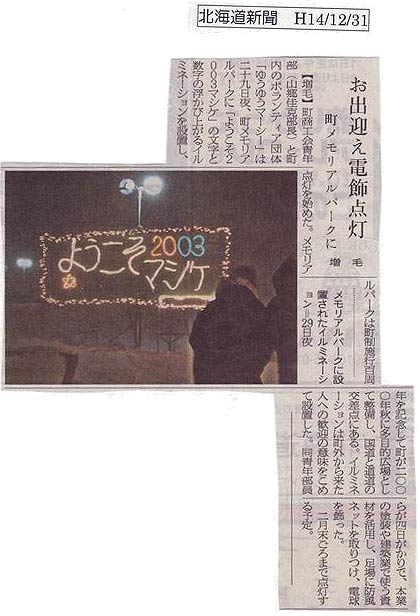 北海道新聞 H14/12/31
お出迎え電飾点灯
町メモリアルパークに
増毛
【増毛】町商工会青年
部(山郷佳克部長)と町
内のボランティア団体
「ゆうゆうマーシー」は
二十九日夜、町メモリア
ルパークに「ようこそ2
003マシケ」の文字と
数字の浮かび上がるイル
ミネーションを設置し、
点灯を始めた。メモリア
ルパークは町制施行百周
年を記念して町が二〇〇
〇年秋に多目的広場とし
て整備し、国道と道道の
交差点にある。イルミネ
ーションは町外から来た
人への歓迎の意味をこめ
て設置した。同青年部員
らが四日がかりで、本業
の塗装や建築業で使う資
材を活用し、足場に防風
ネットを取りつけ、電球
を飾った。
二月末ごろまで点灯す
る予定。
メモリアルパークに設
置されたイルミネーシ
ョン=29日夜
ようこそ2003
マシケ